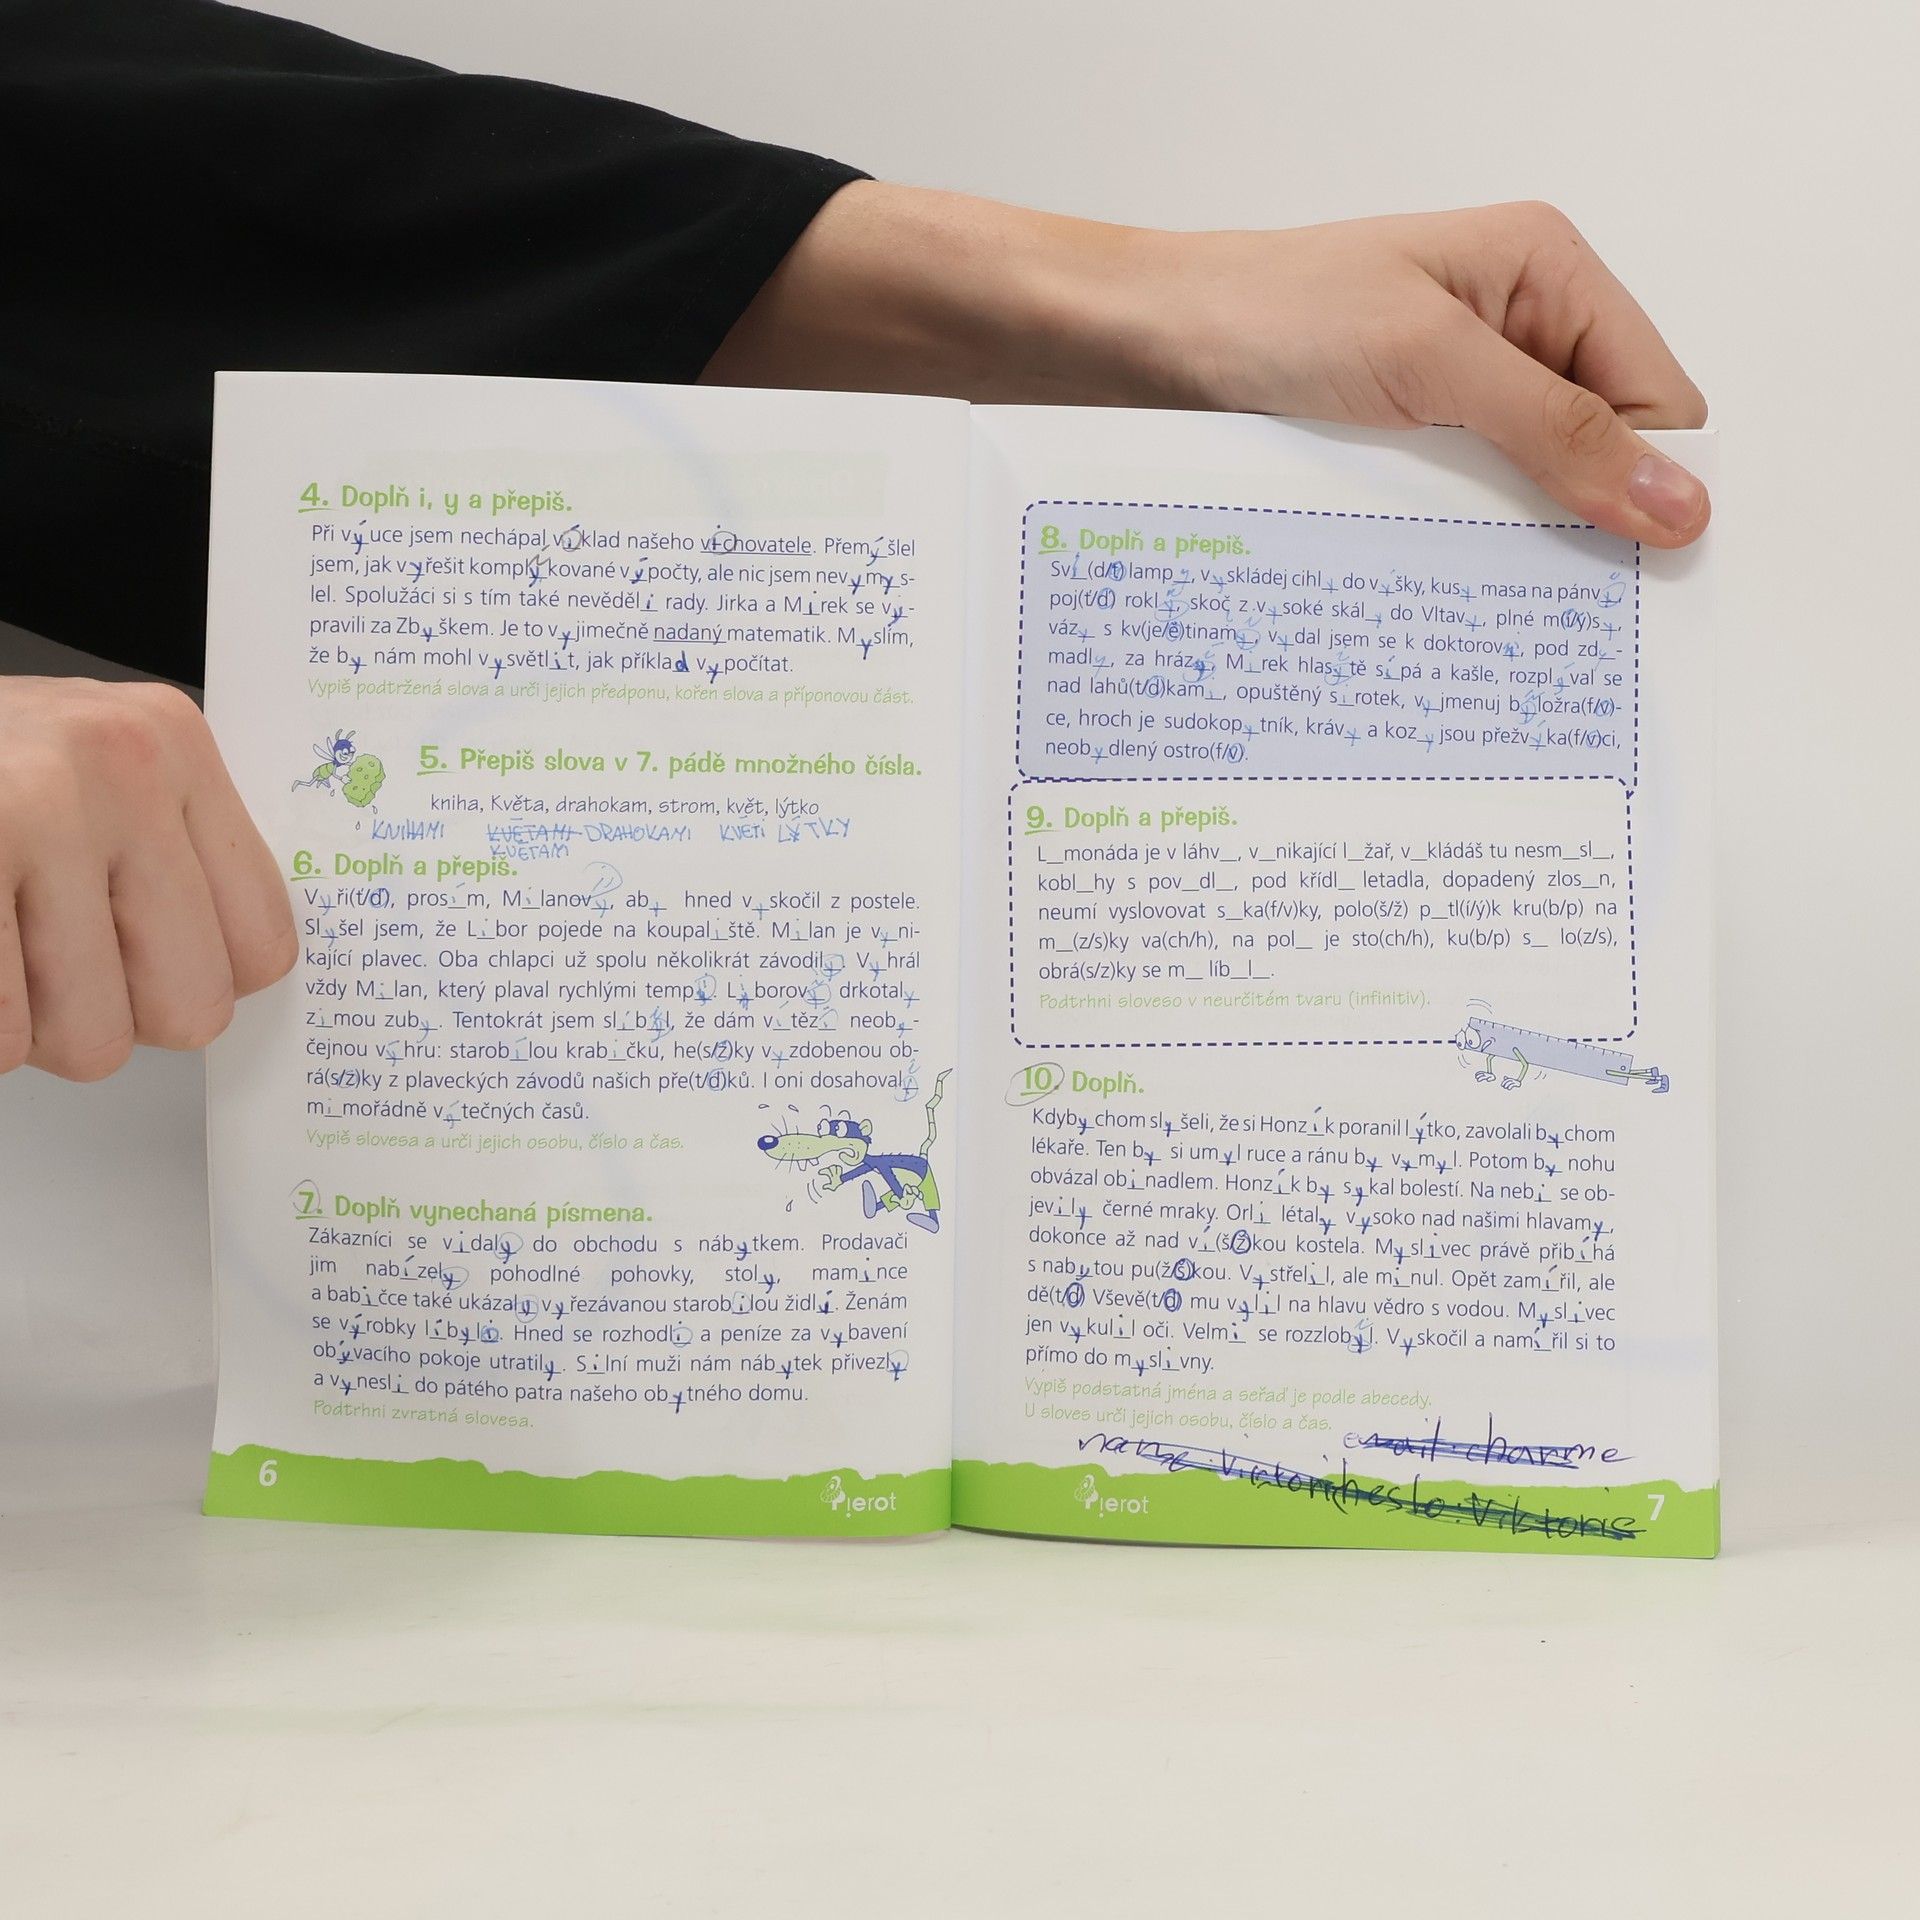 4. Doplň i, y a přepiš.
Při výuce jsem nechápal výklad našeho vychovatele. Přemýšlel
jsem, jak vyřešit komplykované výpočty, ale nic jsem nevymys-
lel. Spolužáci si s tím také nevěděli rady. Jirka a Mirek se vy-
pravili za Zbyškem. Je to vyjimečně nadaný matematik. Myslím,
že by nám mohl vysvětlit, jak příklad vypočítat.
Vypiš podtržená slova a urči jejich předponu, kořen slova a příponovou část.
5. Přepiš slova v 7. pádě množného čísla.
kniha, Květa, drahokam, strom, květ, lýtko
KNIHAMI KVĚTAMI DRAHOKAMI KVĚTI LÝTKY
KVĚTAMI
6. Doplň a přepiš.
Vyři(ť/ď), prosím, Milanovy, aby hned vyskočil z postele.
Slyšel jsem, že Libor pojede na koupaliště. Milan je vyni-
kající plavec. Oba chlapci už spolu několikrát závodily. Vyhrál
vždy Milan, který plaval rychlými tempy. Liborovy drkotaly
zimou zuby. Tentokrát jsem slíbyl, že dám vítězi neoby-
čejnou výhru: starobílou krabičku, he(s/z)ky vyzdobenou ob-
rá(s/z)ky z plaveckých závodů našich pře(t/d)ků. I oni dosahovaly
mimořádně výtečných časů.
Vypiš slovesa a urči jejich osobu, číslo a čas.
7. Doplň vynechaná písmena.
Zákazníci se vidaly do obchodu s nábytkem. Prodavači
jim nabízely pohodlné pohovky, stoly, mamince
a babičce také ukázaly vyřezávanou starobilou židly. Ženám
se výrobky líbyli. Hned se rozhodli a peníze za vybavení
obývacího pokoje utratily. Silní muži nám nábytek přivezly
a vynesli do pátého patra našeho obytného domu.
Podtrhni zvratná slovesa.
6
Pierot
8. Doplň a přepiš.
Sví(ď/ť) lampy, vyskládej cihly do výšky, kusy masa na pánvy,
poj(ť/ď) rokly, skoč z vysoké skály do Vltavy, plné m(í/ý)sy,
vázy s kv(je/ě)tinamy, vydal jsem se k doktorovy, pod zdy-
madly, za hrázy, Mirek hlasytě sípá a kašle, rozplýval se
nad lahů(t/d)kami, opuštěný sirotek, vyjmenuj býložra(f/v)-
ce, hroch je sudokopytník, krávy a kozy jsou přežvýka(f/v)ci,
neobydlený ostro(f/v).
9. Doplň a přepiš.
L_monáda je v láhv_, v_nikající l_žař, v_kládáš tu nesm_sl_,
kobl_hy s pov_dl_, pod křídl_ letadla, dopadený zlos_n,
neumí vyslovovat s_ka(f/v)ky, polo(š/ž) p_tl(í/ý)k kru(b/p) na
m_(z/s)ky va(ch/h), na pol_ je sto(ch/h), ku(b/p) s_ lo(z/s),
obrá(s/z)ky se m_ líb_l_.
Podtrhni sloveso v neurčitém tvaru (infinitiv).
10. Doplň.
Kdybychom slyšeli, že si Honzík poranil lýtko, zavolali bychom
lékaře. Ten by si umyl ruce a ránu by vymyl. Potom by nohu
obvázal obinadlem. Honzík by sykal bolestí. Na nebi se ob-
jevily černé mraky. Orli létaly vysoko nad našimi hlavamy,
dokonce až nad ví(š/ž)kou kostela. Myslivec právě přibíhá
s nabytou pu(ž/š)kou. Vystřelil, ale minul. Opět zamířil, ale
dě(t/d) Vševě(t/d) mu vylil na hlavu vědro s vodou. Myslivec
jen vykulil oči. Velmi se rozzlobyl. Vyskočil a namířil si to
přímo do myslivny.
Vypiš podstatná jména a seřaď je podle abecedy.
U sloves urči jejich osobu, číslo a čas.
email: charme
heslo: Viktorie
Pierot
7